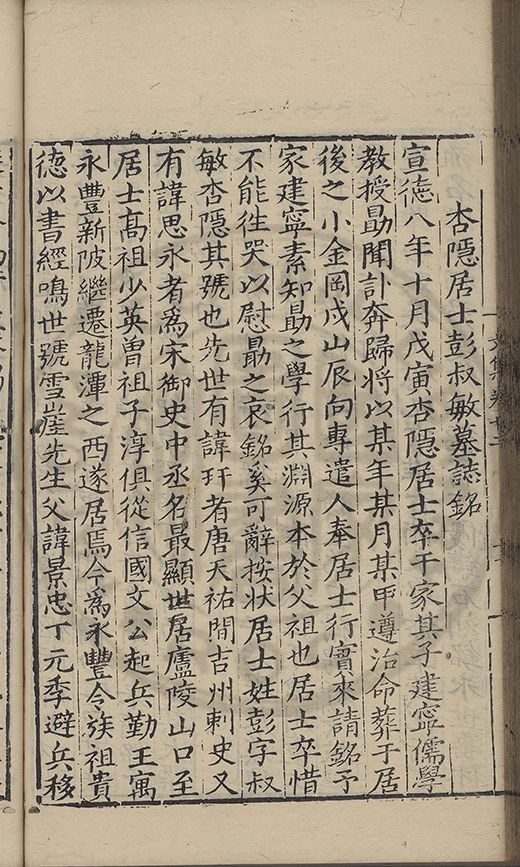 杏隱居士彭叔敏墓誌銘
宣德八年十月戊寅杏隱居士卒于家其子建寧儒學
教授勗聞訃奔歸將以某年某月某甲遵治命葬于居
後之小金岡戍山辰向專遣人奉居士行實來請銘予
家建寧素知勗之學行其淵源本於父祖也居士卒惜
不能徃哭以慰勗之哀銘奚可辭按狀居士姓彭字叔
敏杏隱其號也先世有諱玕者唐天祐間吉州刺史又
有諱思永者爲宋御史中丞名最顯世居廬陵山口至
居士高祖少英曽祖子淳俱從信國文公起兵勤王寓
永豐新陂繼遷龍潭之西遂居焉今爲永豐令族祖貴
德以書經鳴世號雪崖先生父諱景忠丁元季避兵移
文集卷廿二